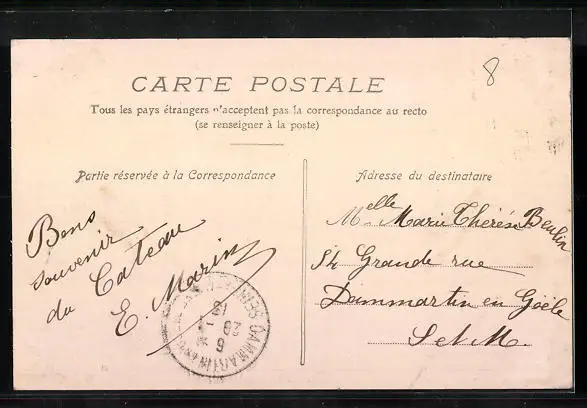 8
CARTE POSTALE
Tous les pays étrangers n'acceptent pas la correspondance au recto
(se renseigner à la poste)
Partie réservée à la Correspondance
Adresse du destinataire
Bons
souvenir
du Cateau
E. Marin
Melle Marie Thérèse Beulin
54 Grande rue
Dammartin en Goële
S et M.
DAMMARTIN